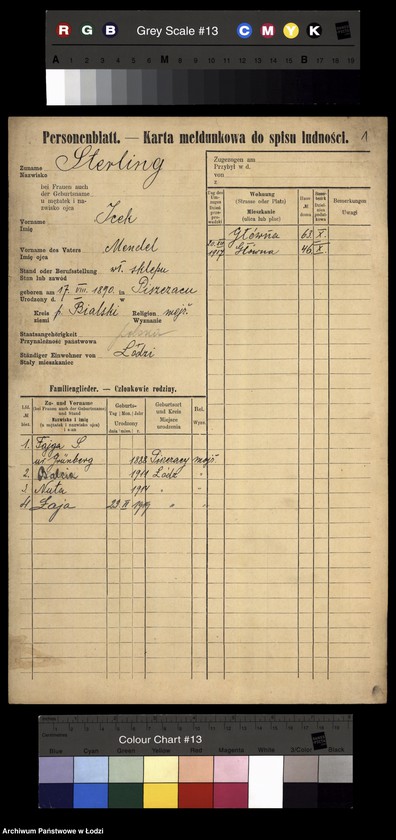 R G B Grey Scale #13 C M Y K
A 1 2 3 4 5 6 M 8 9 10 11 12 13 14 15 B 17 18 19
Personenblatt. — Karta meldunkowa do spisu ludności. 1
Zuname
Nazwisko
Sterling
bei Frauen auch
der Geburtsname
u mężatek i na-
zwisko ojca
Vorname
Imię
Icek
Vorname des Vaters
Imię ojca
Mendel
Stand oder Berufsstellung
Stan lub zawód
wł. sklepu
geboren am 17. VIII. 1890. in Piszczacu
Urodzony d. w
Kreis
ziemi
p. Bialski
Religion
Wyznanie
mojż.
Staatsangehörigkeit
Przynależność państwowa
Ständiger Einwohner von
Stały mieszkaniec
Łodzi
Zugezogen am
Przybył w d.
von
z
Wohnung
(Strasse oder Platz)
Mieszkanie
(ulica lub plac)
Bemerkungen
Uwagi
Główna 63. X.
1917 Główna 46. X.
Familienglieder. — Członkowie rodziny.
Zu- und Vorname
(bei Frauen auch der Geburtsname
und Stand
Nazwisko i imię
(u mężatek i nazwisko ojca)
i stan
Geburts-
Tag Mon. Jahr
Urodzony
dnia mies. r.
Geburtsort
und Kreis
Miejsce
urodzenia
Rel.
Wyzn
1. Fajga S
ur. Grünberg 1888 Piszczacy mojż.
2. 1911 Łódź "
3. Nuta 1914 " "
4. Łaja 23 1919 " "
Colour Chart #13
Blue Cyan Green Yellow Red Magenta White 3/Color Black
Archiwum Państwowe w Łodzi